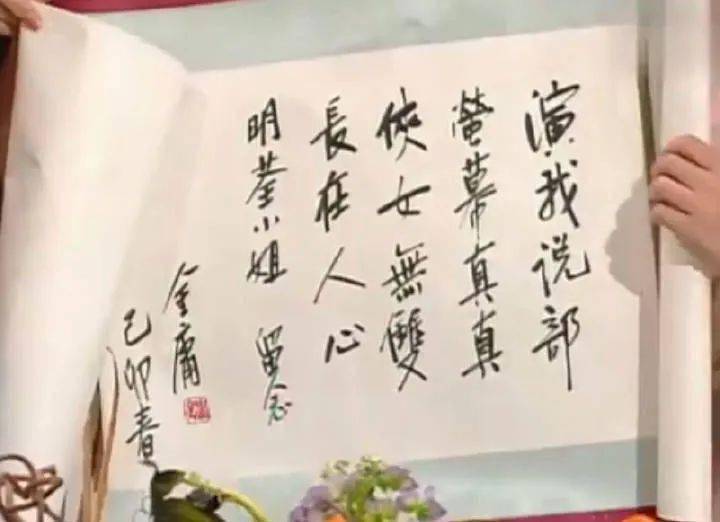 演我说部
萤幕真真
俠女無雙
長在人心
明荃小姐 留念
金庸
己卯春